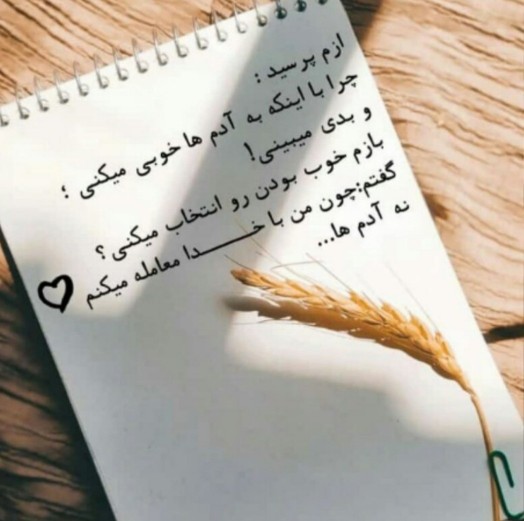 ازم پرسید :
چرا با اینکه به آدم ها خوبی میکنی ؛
و بدی میبینی !
بازم خوب بودن رو انتخاب میکنی ؟
گفتم:چون من با خـــــدا معامله میکنم
نه آدم ها...